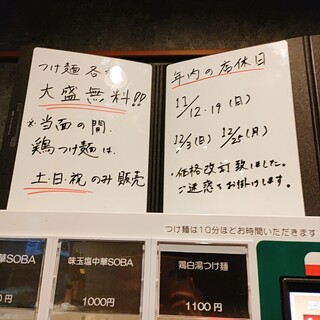 つけ麺各
大盛無料!!
※当面の間、
鶏つけ麺は、
土・日・祝のみ販売
年内の店休日
11/12・19(日)
12/3(日) 12/25(月)
・価格改訂致しました。
ご迷惑をお掛けします。
つけ麺は10分ほどお時間いただきます
華SOBA
味玉塩中華SOBA
鶏白湯つけ麺
0円
1000円
1100円